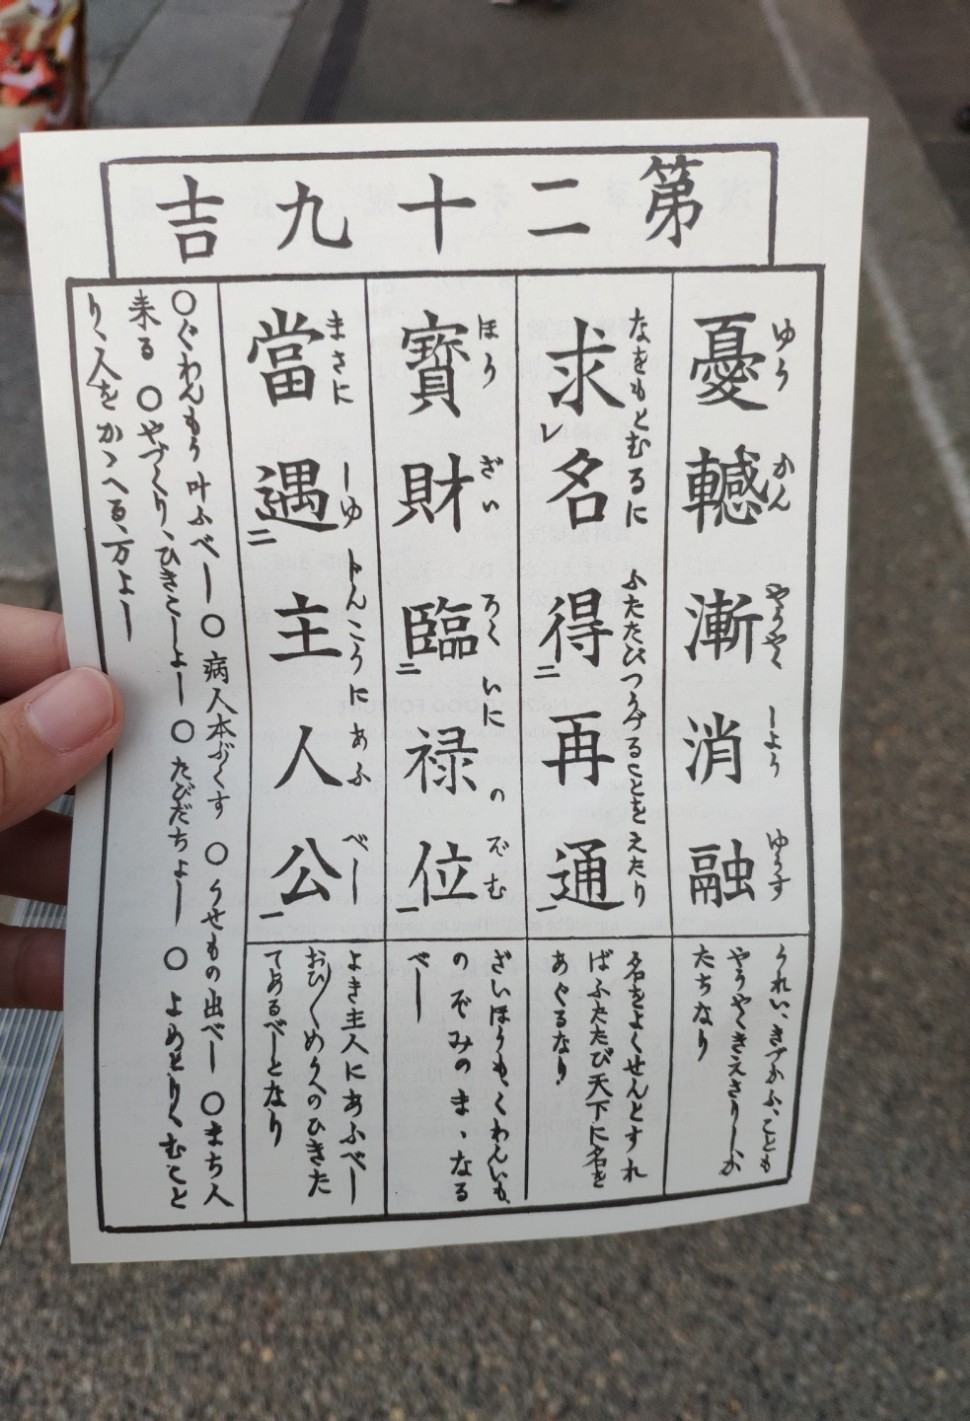 第二十九吉
憂轗漸消融
ゆう かん やうやく しよう ゆうす
求レ名得二再通一
なをもとむるに ふたたびつうづることをえたり
寶財臨二禄位一
ほう ざい ろく いに の ぞむ
當遇二主人公一
まさに しゆ じんこうに あふ べし
うれい、きづかふ、ことも
やうやくきえさりしか
たちなり
名をよくせんとすれ
ばふたたび天下に名を
あぐるなり
ざいほうも、くわんいも、
のぞみのまゝなる
べし
よき主人にあふべし
おひ〳〵めうへのひきた
てあるべしとなり
○ぐわんもう叶ふべし ○病人本ぶくす ○うせもの出べし ○まち人
来る ○やづくり、ひきこしよし ○たびだちよし ○よめとりむこと
り、人をかゝへる、万よし